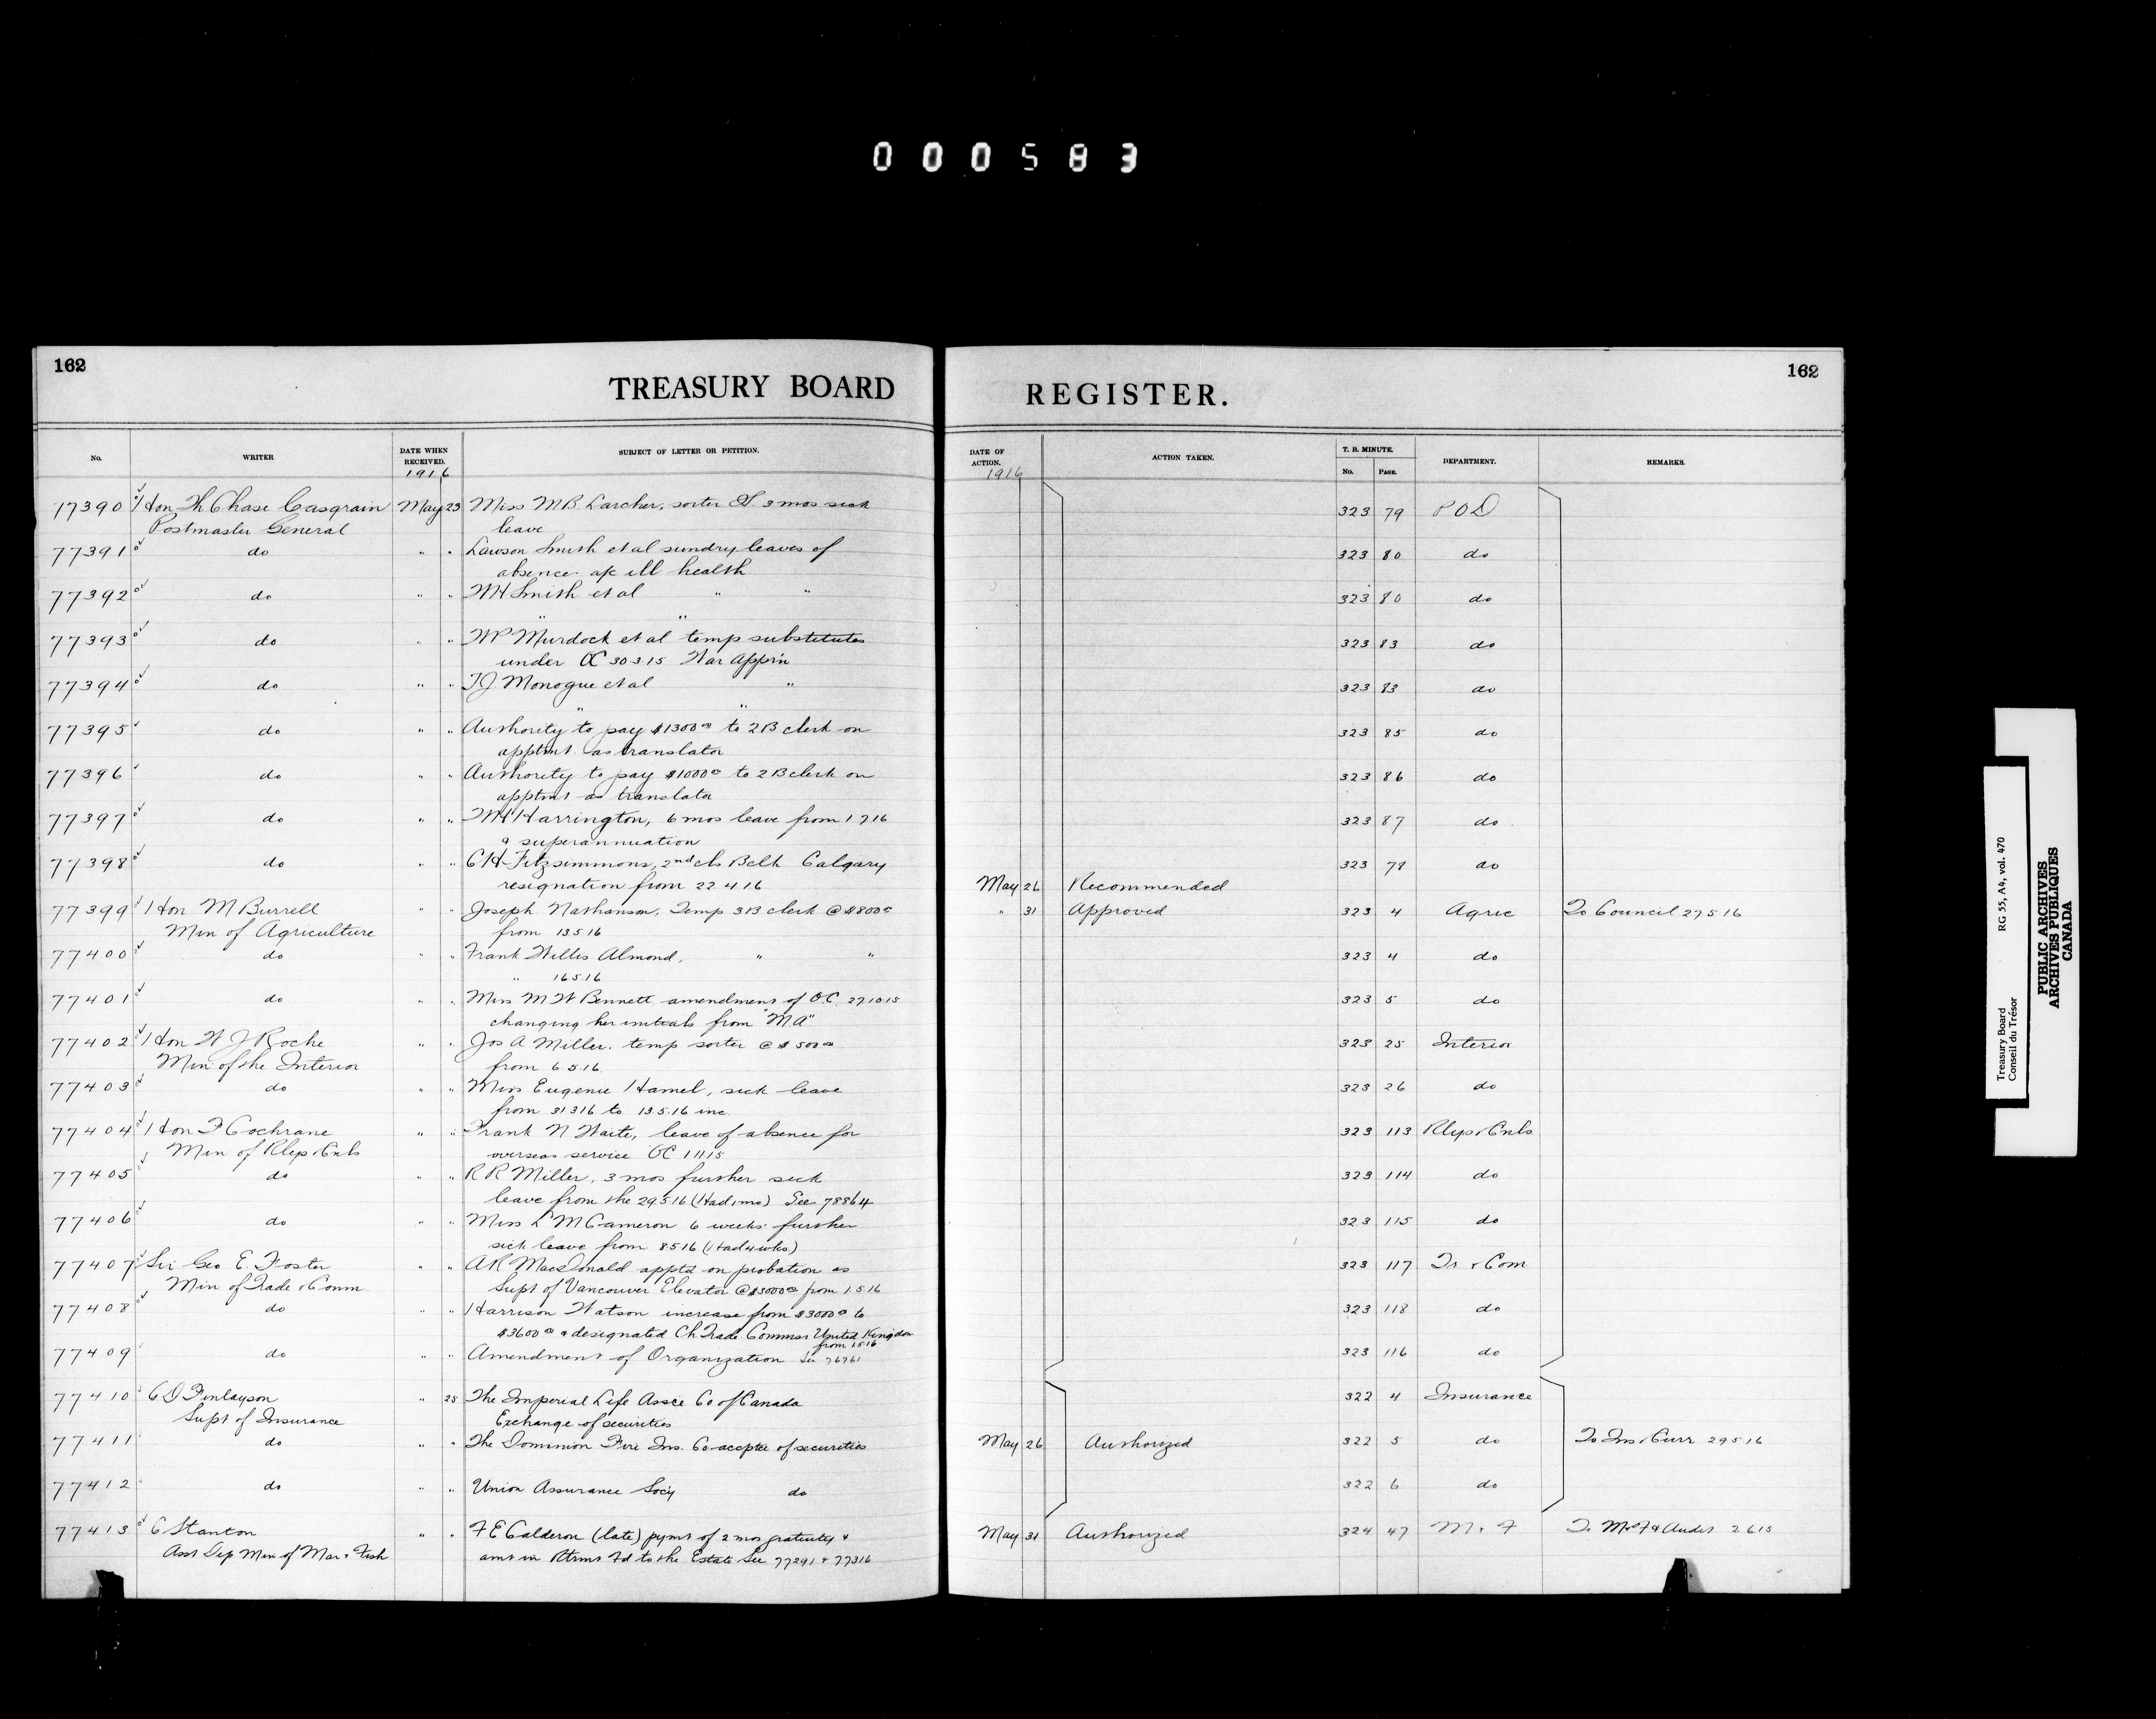 000583
162
TREASURY BOARD
REGISTER.
162
No.
WRITER
DATE WHEN RECEIVED.
SUBJECT OF LETTER OR PETITION.
DATE OF ACTION.
ACTION TAKEN.
T. B. MINUTE.
No.
PAGE.
DEPARTMENT.
REMARKS.
1916
1916
77390 Hon Th Chase Casgrain May 23 Miss M B Larcher, sorter 3 mos sick 323 79 P O D
Postmaster General leave
77391 do " " Lawson Smith et al sundry leaves of 323 80 do
absence a/c ill health
77392 do " " W H Smith et al " " 323 80 do
" "
77393 do " " W P Murdock et al temp substitutes 323 83 do
under OC 30 3 15 War Appr'n
77394 do " " T J Monogue et al " 323 83 do
" "
77395 do " " Authority to pay $1300 00 to 2 B clerk on 323 85 do
apptmt as translator
77396 do " " Authority to pay $1000 00 to 2 B clerk on 323 86 do
apptmt as translator
77397 do " " W H Harrington, 6 mos leave from 1 7 16 323 87 do
& superannuation
77398 do " " C H Fitzsimmons, 2nd cls Calgary 323 79 do
resignation from 22 4 16 May 26 Recommended
77399 Hon M Burrell " " Joseph Nathanson, Temp 3 B clerk @ $800 00 " 31 Approved 323 4 Agric To Council 27 5 16
Min of Agriculture from 13 5 16
77400 do " " Frank Willis Almond, " " 323 4 do
" 16 5 16
77401 do " " Miss M W Bennett amendment of O.C. 27 10 15 323 5 do
changing her initials from "M.A"
77402 Hon W J Roche " " Jos A Miller, temp sorter @ $500 00 323 25 Interior
Min of the Interior from 6 5 16
77403 do " " Miss Eugenie Hamel, sick leave 323 26 do
from 31 3 16 to 13.5.16 inc.
77404 Hon F Cochrane " " Frank N Waite, leave of absence for 323 113 Rlys & Cnls
Min of Rlys & Cnls overseas service OC 1 11 15
77405 do " " R R Miller, 3 mos further sick 323 114 do
leave from the 29 5 16 (Had 1 mo) See 78864
77406 do " " Miss L M Cameron 6 weeks further 323 115 do
sick leave from 8 5 16 (Had 4 wks)
77407 Sir Geo E. Foster " " A R MacDonald apptd on probation as 323 117 Tr & Com
Min of Trade & Comm Supt of Vancouver Elevator @ $3000 00 from 1.5.16
77408 do " " Harrison Watson increase from $3000 00 to 323 118 do
$3600 00 & designated Ch Trade Commsr United Kingdom
from 1 5 16
77409 do " " Amendment of Organization See 76761 323 116 do
77410 G D Finlayson " 25 The Imperial Life Assce Co of Canada 322 4 Insurance
Supt of Insurance Exchange of securities
77411 do " " The Dominion Fire Ins. Co acceptce of securities May 26 Authorized 322 5 do To Ins & Curr 29 5 16
77412 do " " Union Assurance Socy do 322 6 do
77413 C Stanton " " F E Calderon (late) pymt of 2 mos gratuity & May 31 Authorized 324 47 M & F To M & F & Audit 2 6 15
Asst Dep Min of Mar & Fish amt in Rtrmt Fd to the Estate See 77291 & 77316
Treasury Board
Conseil du Trésor
RG 55, A4, vol. 470
PUBLIC ARCHIVES
ARCHIVES PUBLIQUES
CANADA